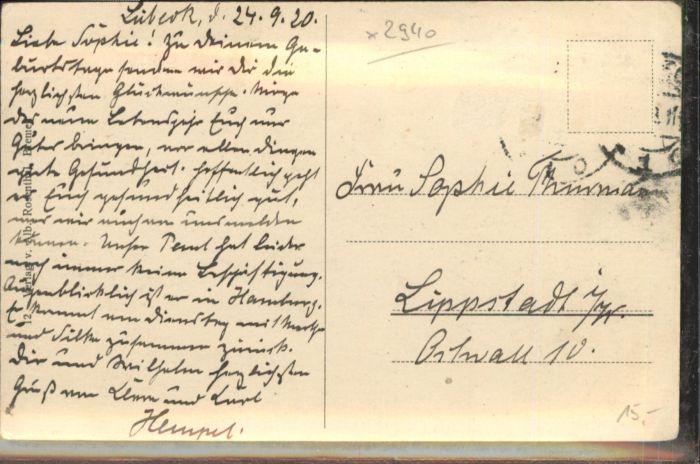 Lübeck, d. 24.9.20.
Liebe Sophie! Zu Deinem Ge-
burtstage senden wir Dir die
herzlichsten Glückwünsche. Möge
das neue Lebensjahr Euch nur
Gutes bringen, vor allen Dingen
gute Gesundheit. Hoffentlich geht
es Euch gesundheitlich gut,
was wir auch von uns melden
können. Unser Paul hat leider
noch immer keine Beschäftigung.
Augenblicklich ist er in Hamburg.
Er kommt am Dienstag mit
und zusammen zurück.
Dir und Wilhelm herzlichsten
Gruß von und Carl
Hempel.
Verlag v. Rosenthal, Bremen
x 2940
Frau Sophie
Lippstadt i/W.
Ostwall 10.
15.-